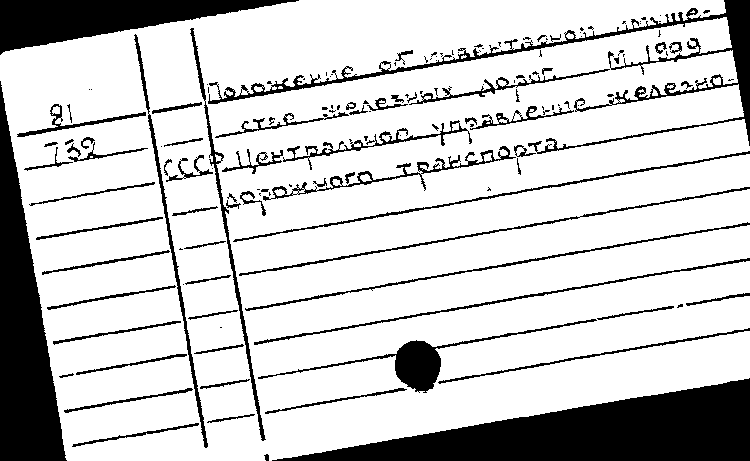 Положение об инвентарном имуще-
81
стве железных дорог. М., 1929
732
СССР. Центральное управление железно-
дорожного транспорта.